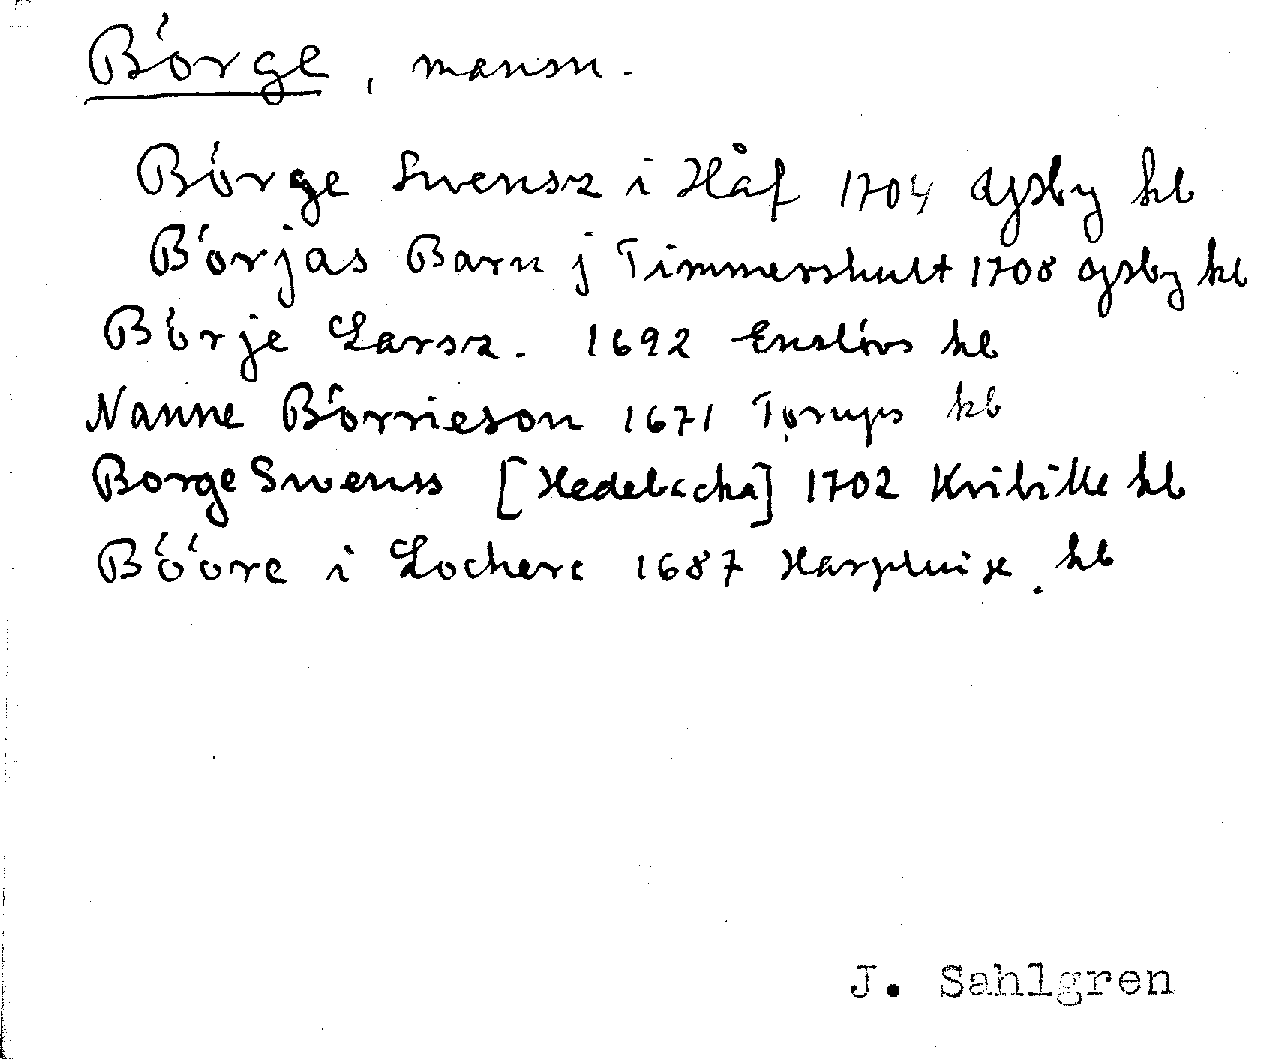 Börge, mansn.
Börge Swensz i Håf 1704 Gjsby kb
Börjas Barn j Timmershult 1708 Gjsby kb
Börje Larsz. 1692 Enslövs kb
Nanne Börrieson 1671 Torups kb
Borge Swenss [Hedebacka] 1702 Kvibille kb
Bööre i Lockere 1687 Harplinge. kb
J. Sahlgren